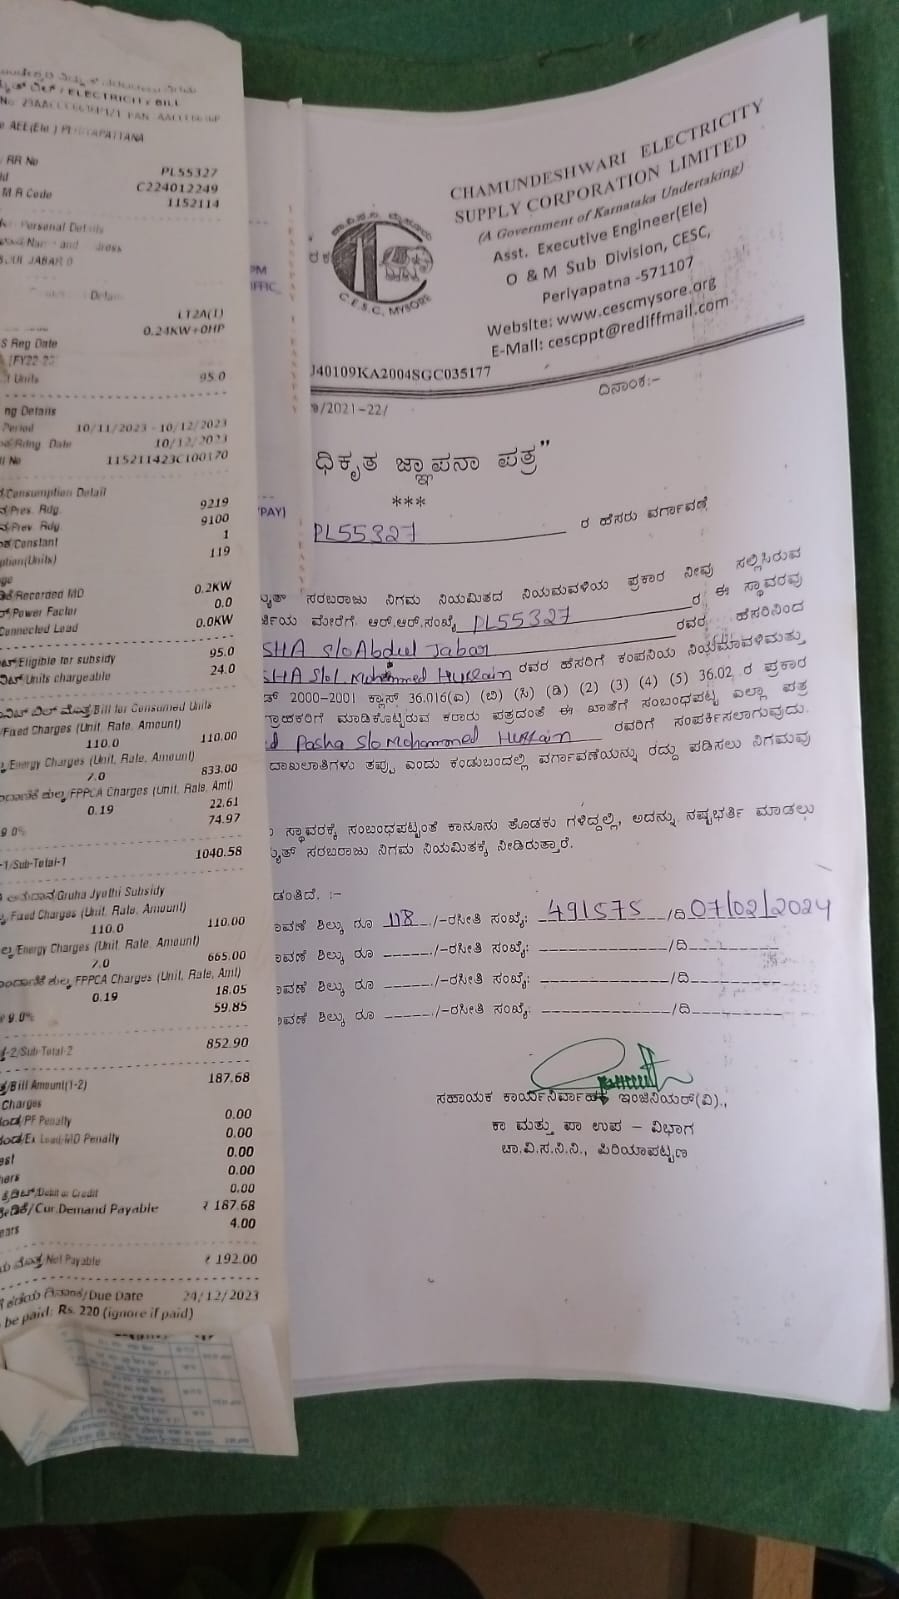 ELECTRICITY BILL
AEE(Ele.)
RR No PL55327
C224012249
M R Code 1152114
Personal Details
Name and
JABAR
LT2A(1)
0.24KW+0HP
Reg Date
[FY22-23
Units 95.0
ng Details
Period 10/11/2023 - 10/12/2023
Rdng Date 10/12/2023
No 115211423C100170
/Consumption Detail
/Pres. Rdg. 9219
/Prev. Rdg. 9100
/Constant 1
ption(Units) 119
/Recorded MD 0.2KW
/Power Factor 0.0
Connected Load 0.0KW
/Eligible for subsidy 95.0
/Units chargeable 24.0
/Bill for Consumed Units
/Fixed Charges (Unit, Rate, Amount)
110.0 110.00
/Energy Charges (Unit, Rate, Amount)
7.0 833.00
/FPPCA Charges (Unit, Rate, Amt)
0.19 22.61
9.0% 74.97
-1/Sub-Total-1 1040.58
/Gruha Jyothi Subsidy
/Fixed Charges (Unit, Rate, Amount)
110.0 110.00
/Energy Charges (Unit, Rate, Amount)
7.0 665.00
/FPPCA Charges (Unit, Rate, Amt)
0.19 18.05
9.0% 59.85
-2/Sub-Total-2 852.90
/Bill Amount(1-2) 187.68
Charges
/PF Penalty 0.00
/Ex Load/MD Penalty 0.00
est 0.00
hers 0.00
/Debit or Credit 0.00
/Cur.Demand Payable ₹ 187.68
ears 4.00
/Net Payable ₹ 192.00
/Due Date 24/12/2023
be paid: Rs. 220 (ignore if paid)
CHAMUNDESHWARI ELECTRICITY
SUPPLY CORPORATION LIMITED
(A Government of Karnataka Undertaking)
Asst. Executive Engineer(Ele)
O & M Sub Division, CESC,
Periyapatna -571107
Website: www.cescmysore.org
E-Mail: cescppt@rediffmail.com
C.E.S.C, MYSORE
J40109KA2004SGC035177
/2021-22/ ದಿನಾಂಕ:-
ಧಿಕೃತ ಜ್ಞಾಪನಾ ಪತ್ರ"
***
PAY)
PL55327 ರ ಹೆಸರು ವರ್ಗಾವಣೆ
ಸರಬರಾಜು ನಿಗಮ ನಿಯಮಿತದ ನಿಯಮವಳಿಯ ಪ್ರಕಾರ ನೀವು ಸಲ್ಲಿಸಿರುವ
ಮೇರೆಗೆ ಆರ್.ಆರ್.ಸಂಖ್ಯೆ PL55327 ರ ಈ ಸ್ಥಾವರವು
SHA S/o Abdul Jabar ರವರ ಹೆಸರಿನಿಂದ
SHA S/o. Mohammed Hussain ರವರ ಹೆಸರಿಗೆ ಕಂಪನಿಯ ನಿಯಮಾವಳಿಮತ್ತು
2000-2001 ಕ್ಲಾಸ್ 36.016(ಎ) (ಬಿ) (ಸಿ) (ಡಿ) (2) (3) (4) (5) 36.02 ರ ಪ್ರಕಾರ
ಗ್ರಾಹಕರಿಗೆ ಮಾಡಿಕೊಟ್ಟಿರುವ ಕರಾರು ಪತ್ರದಂತೆ ಈ ಖಾತೆಗೆ ಸಂಬಂಧಪಟ್ಟ ಎಲ್ಲಾ ಪತ್ರ
d Pasha S/o Mohammed Hussain ರವರಿಗೆ ಸಂಪರ್ಕಿಸಲಾಗುವುದು.
ದಾಖಲಾತಿಗಳು ತಪ್ಪು ಎಂದು ಕಂಡುಬಂದಲ್ಲಿ ವರ್ಗಾವಣೆಯನ್ನು ರದ್ದು ಪಡಿಸಲು ನಿಗಮವು
ಸ್ಥಾವರಕ್ಕೆ ಸಂಬಂಧಪಟ್ಟಂತೆ ಕಾನೂನು ತೊಡಕು ಗಳಿದ್ದಲ್ಲಿ, ಅದನ್ನು ನಷ್ಟಭರ್ತಿ ಮಾಡಲು
ಸರಬರಾಜು ನಿಗಮ ನಿಯಮಿತಕ್ಕೆ ನೀಡಿರುತ್ತಾರೆ.
ಡಂತಿದೆ. :-
ಾವಣೆ ಶಿಲ್ಕು ರೂ 118 /-ರಸೀತಿ ಸಂಖ್ಯೆ: 491575 /ದಿ 07/02/2024
ಾವಣೆ ಶಿಲ್ಕು ರೂ /-ರಸೀತಿ ಸಂಖ್ಯೆ: /ದಿ
ಾವಣೆ ಶಿಲ್ಕು ರೂ /-ರಸೀತಿ ಸಂಖ್ಯೆ: /ದಿ
ಾವಣೆ ಶಿಲ್ಕು ರೂ /-ರಸೀತಿ ಸಂಖ್ಯೆ: /ದಿ
ಸಹಾಯಕ ಕಾರ್ಯನಿರ್ವಾಹಕ ಇಂಜಿನಿಯರ್(ವಿ).,
ಕಾ ಮತ್ತು ಪಾ ಉಪ – ವಿಭಾಗ
ಚಾ.ವಿ.ಸ.ನಿ.ನಿ., ಪಿರಿಯಾಪಟ್ಟಣ